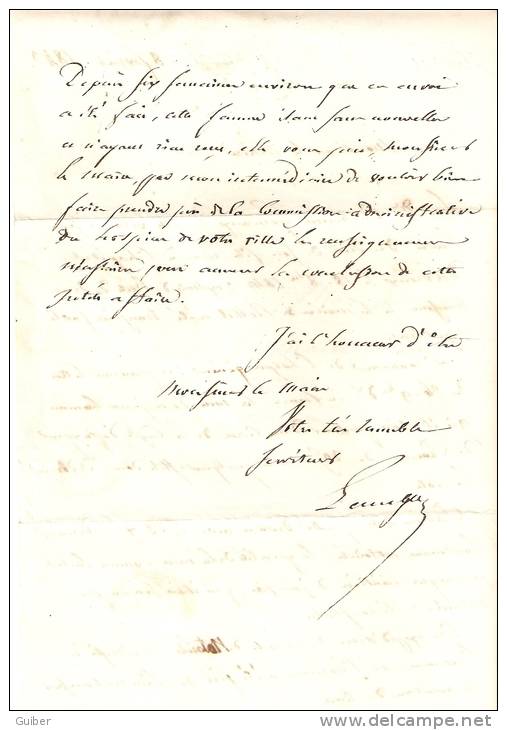 Depuis six semaines environ que cet envoi
a été fait, cette femme étant sans nouvelles
et n'ayant rien reçu, elle vous prie, Monsieur
le Maire, par mon intermédiaire de vouloir bien
faire prendre près de la Commission administrative
du hospice de votre ville les renseignemens
nécessaires pour amener la conclusion de cette
petite affaire.
J'ai l'honneur d'être
Monsieur le Maire
Votre très humble
serviteur
Guiber
delcampe.net